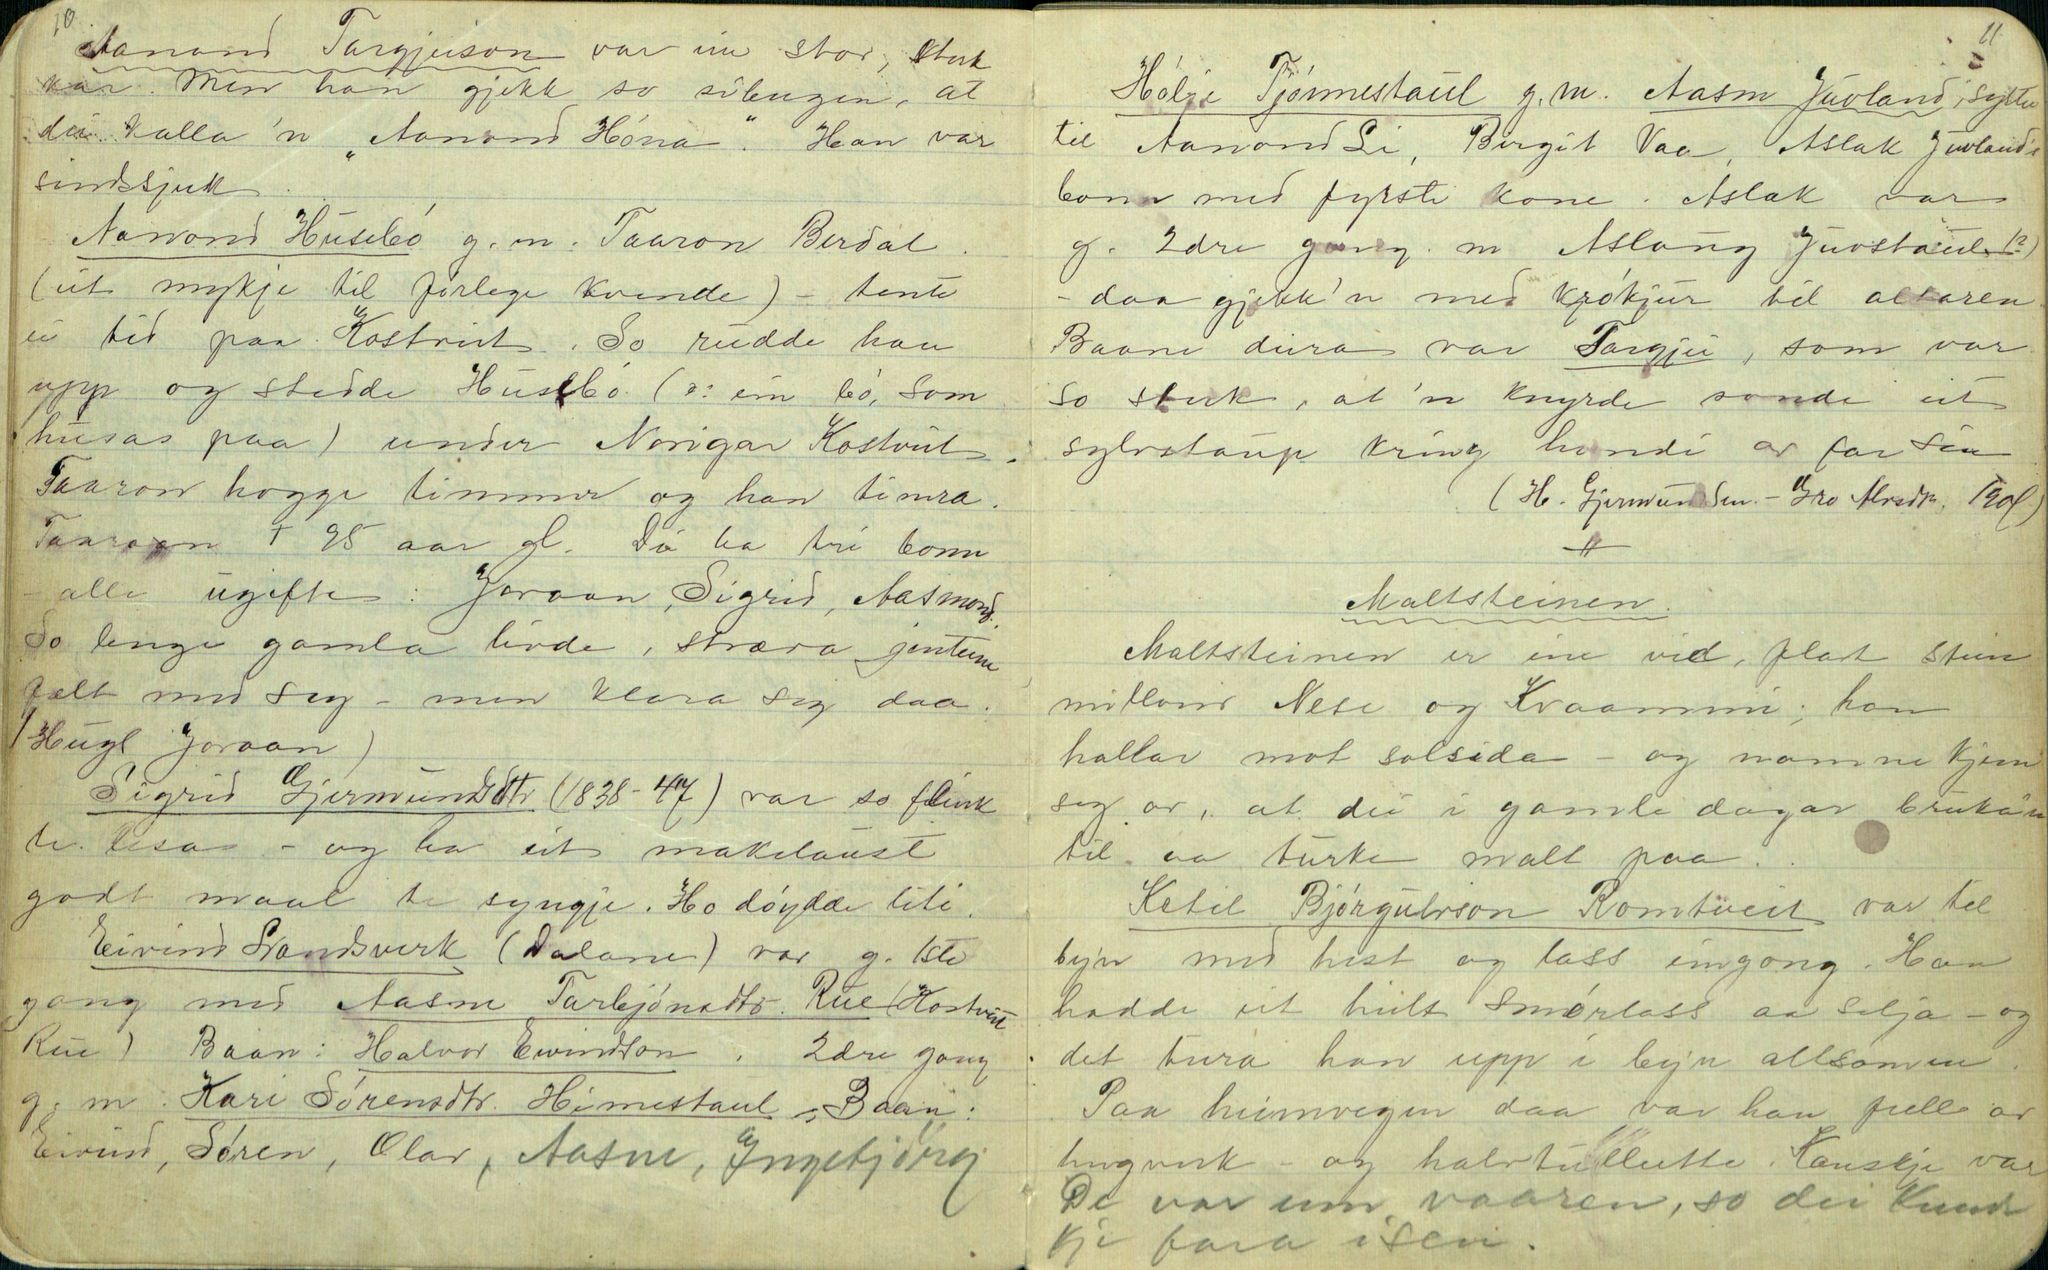 10
Aanond Targjeison var ein stor, sterk
kar. Men han gjekk so sibugen, at
dei kalla'n "Aanond Hóna". Han var
sindssjuk.
Aanond Húsebó g. m. Taaron Berdal.
(eit mykje til førlege kvende) - tente
ei tid paa Kostveit. So rudde han
upp og stedde Húsebó (ɔ: ein bó, som
húsas paa) under Norigar Kostveit.
Taaron hogge timmer og han timra.
Taaraan † 95 aar gl. Dei ha tri bonn
- alle ugifte: Joraan, Sigrid, Aasmond.
So lenge gamla livde, stræva jentune
fælt med seg - men klara seg daa.
(Hugl Joraan)
Sigrid Gjermundsdtr (1838-47) var so flink
te lesa - og ha eit makelaust
godt maal te syngje. Ho dóydde liti.
Eivind Sandsverk (Dalane) var g. 1ste
gong med Aasne Tarbjónsdtr. Rue (Kostveit
Rue) Baan: Halvor Eivindson. 2dre gong
g. m. Kari Sórensdtr. Himestaul - Baan:
Eivind, Sóren, Olav, Aasne, Ingebjörg
11
Hólje Tjónnestaul g. m. Aasne Juvland, syster
til Aanond Li, Bergit Vaa, Aslak Juvland's
bonn med fyrste kone. Aslak var
g. 2dre gong m Aslaug Juvstaul (?)
- daa gjekk'n med krókjur til altaren.
Baane deira var Targjei, som var
so sterk, at'n knyrde sonde eit
sylvstaup kring hondi av far sin
(H. Gjermundsen. - Gro Alvsdtr. 1901)
Maltsteinen.
Maltsteinen er ein vid, flat stein
millom Nese og Kraammi; han
hallar mot solsida - og namne kjem
seg av, at dei i gamle dagar bruka'n
til aa turke malt paa.
Ketil Bjórgulvson Romtveit var til
byn med hest og lass eingong. Han
hadde eit heilt smórlass aa selja - og
det tura han upp i byn allsamen.
Paa heimvegen daa var han full av
hugverk - og halvtullutte. Kanskje var
De var um vaaren, so dei kunde
kje fara isen.